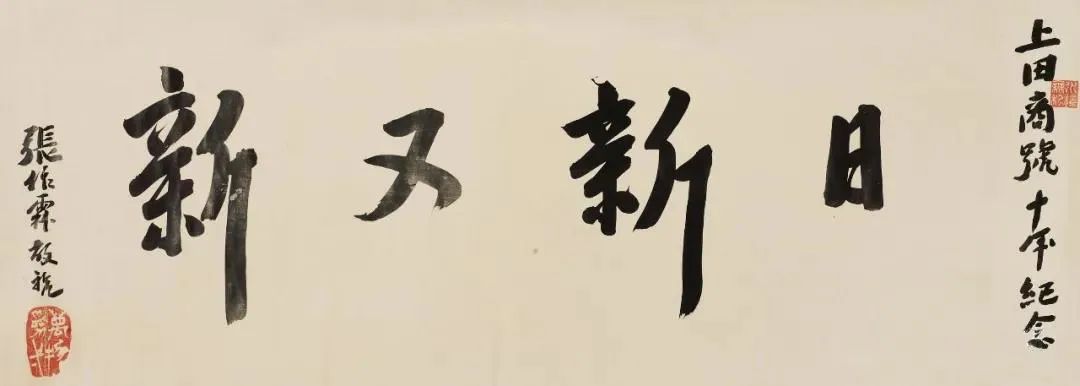 上田商號十年紀念
日新又新
張作霖敬祝